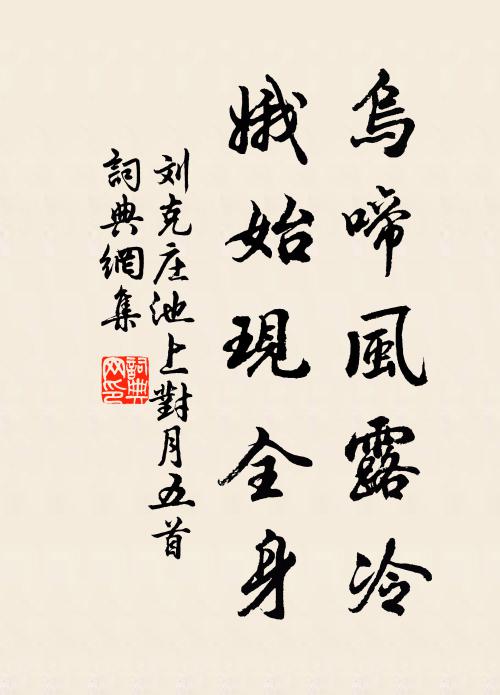 烏啼風露冷
娥始現全身
刘克庄池上對月五首
詞典網集
詞典
网印